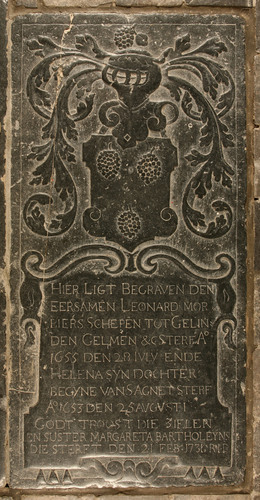 HIER LIGT BEGRAVEN DEN
EERSAMEN LEONARD MOR
LIERS SCHEPEN TOT GELIN
DEN GELMEN &C STERF Aº
1655 DEN 28 IVLY ENDE
HELENA SYN DOCHTER
BEGYNE VAN S AGNET STERF
Aº 1653 DEN 25 AVGVSTI
GODT TROOST DIE ZIELEN
EN SUSTER MARGARETA BARTHOLEYNS
DIE STERFT DEN 21 FEB 1731 RIP